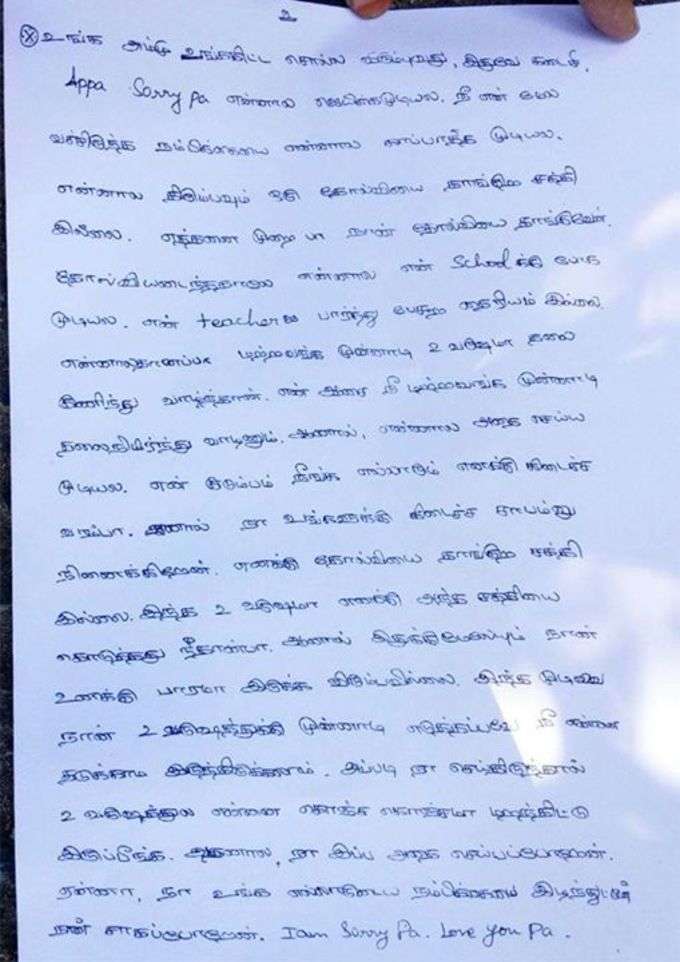 2
உங்க அம்மு உங்ககிட்ட சொல்ல விரும்புவது, இதுவே கடைசி.
Appa Sorry pa என்னால ஜெயிக்கமுடியல. நீ என் மேல
வச்சிருந்த நம்பிக்கையை என்னால காப்பாத்த முடியல.
என்னால திரும்பவும் ஒரு தோல்வியை தாங்கும் சக்தி
இல்லை. எத்தனை முறை பா நான் தோல்வியை தாங்குவேன்.
தோல்வியடைந்ததால என்னால என் Schoolக்கு போக
முடியல. என் teacherஐ பார்த்து பேசும் தைரியம் இல்லை.
என்னாலதானப்பா முன்னாடி 2 வருஷமா தலை
குணிந்து வாழ்ந்தான். என் ஆசை நீ முன்னாடி
தலைநிமிர்ந்து வாழணும். ஆனால், என்னால அதை செய்ய
முடியல. என் குடும்பம் நீங்க எல்லாரும் எனக்கு கிடைச்ச
வரம்பா. ஆனால் நா உங்களுக்கு கிடைச்ச சாபம்னு
நினைக்கிறேன். எனக்கு தோல்வியை தாங்கும் சக்தி
இல்லை. இந்த 2 வருஷமா எனக்கு அந்த சக்தியை
கொடுத்தது நீதான்பா. ஆனால் இதுக்குமேலயும் நான்
உனக்கு பாரமா இருக்க விரும்பவில்லை. இந்த முடிவை
நான் 2 வருஷத்துக்கு முன்னாடி எடுத்தப்பவே நீ என்ன
தடுக்காம இருந்திருக்கலாம். அப்படி நா செய்திருந்தால்
2 வருஷத்துல என்னை கொஞ்ச கொஞ்சமா
இருப்பீங்க. அதனால, நா இப்ப அதை செய்யப்போறேன்.
ஏன்னா, நா உங்க எல்லாருடைய நம்பிக்கையை
நான் சாகப்போறேன். I am Sorry Pa. Love You Pa.